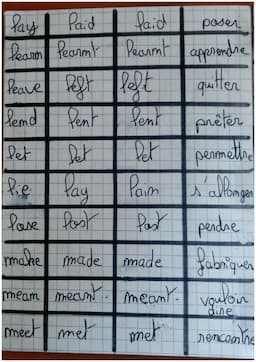 lay laid laid poser
learn learnt learnt apprendre
leave left left quitter
lend lent lent prêter
let let let permettre
lie lay lain s'allonger
lose lost lost perdre
make made made fabriquer
mean meant. meant. vouloir
dire
meet met met rencontre